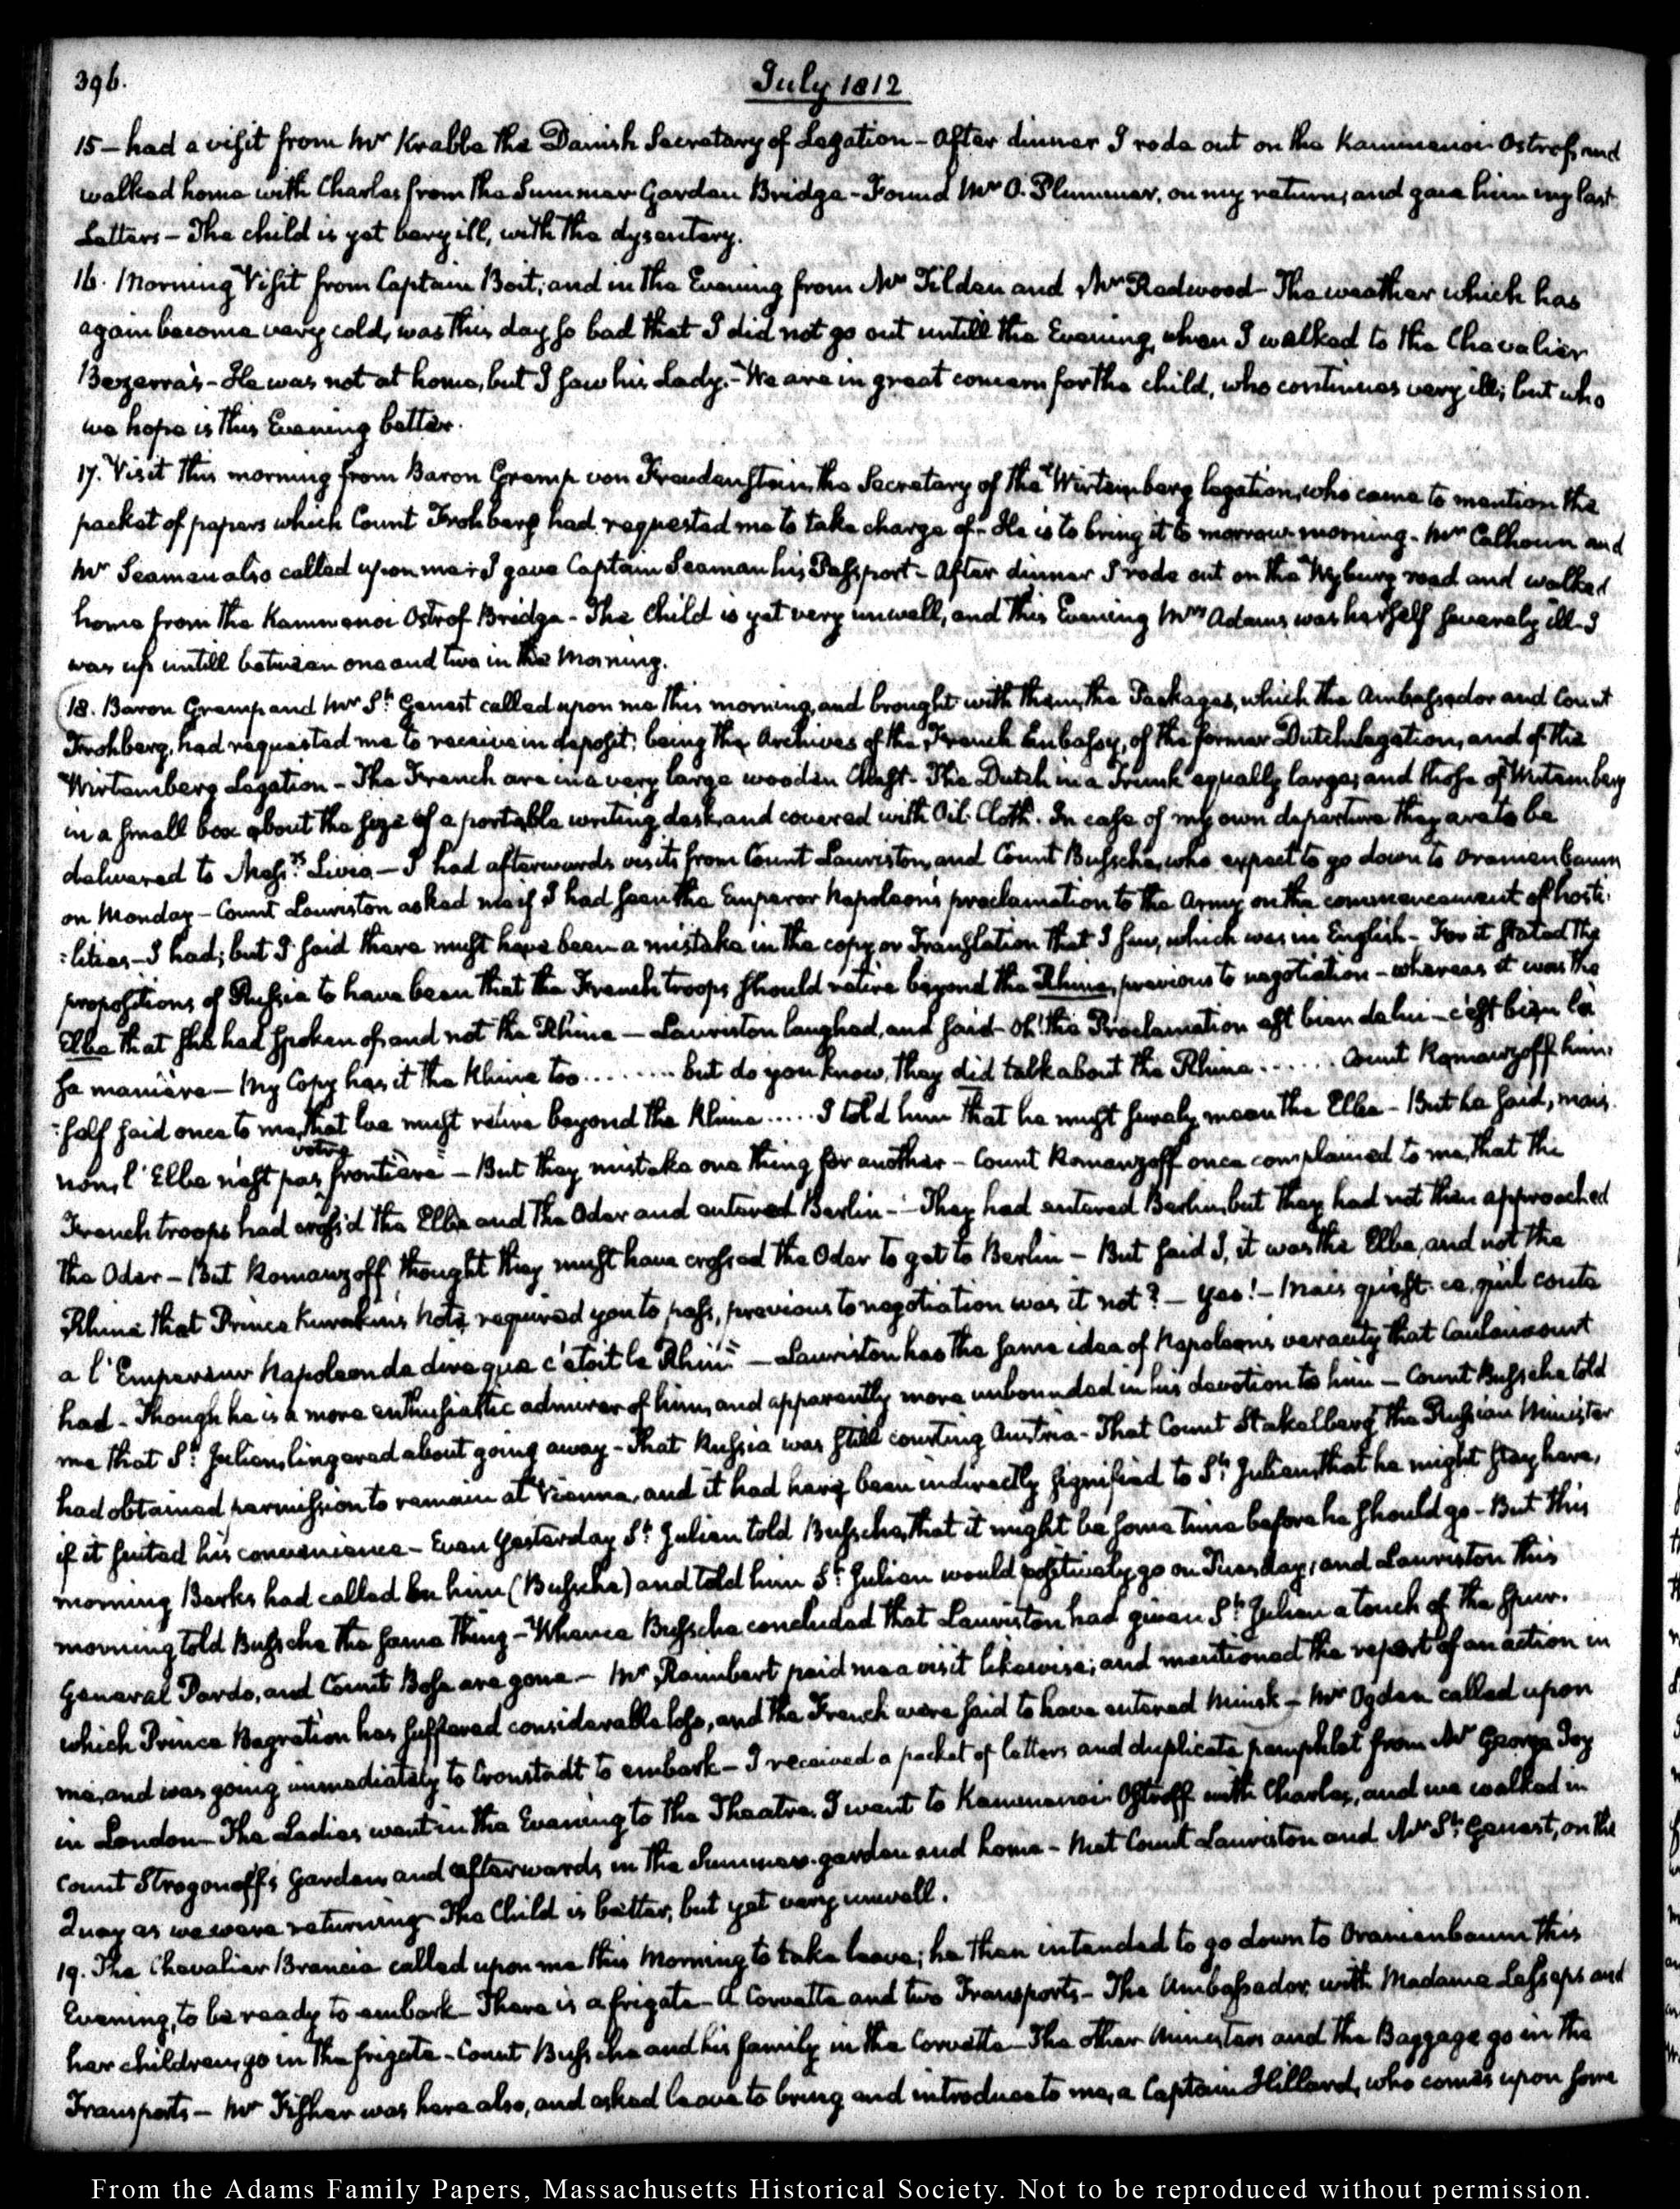 396.
July 1812
15 - had a visit from Mr Krabbe the Danish Secretary of Legation - After dinner I rode out on the Kammenoi Ostrof, and
walked home with Charles from the Summer Garden Bridge - Found Mr O. Plummer, on my return, and gave him my last
Letters - The child is yet very ill, with the dysentery.
16. Morning Visit from Captain Boit; and in the Evening from Mr Tilden and Mr Redwood - The weather which has
again become very cold, was this day so bad that I did not go out untill the Evening, when I walked to the Chevalier
Bezerra's - He was not at home, but I saw his Lady. - We are in great concern for the child, who continues very ill; but who
we hope is this Evening better.
17. Visit this morning from Baron Gremp von Freudenstein, the Secretary of the Wirtemberg legation, who came to mention the
packet of papers which Count Frohberg had requested me to take charge of - He is to bring it to morrow morning - Mr Calhoun and
Mr Seaman also called upon me; I gave Captain Seaman his Passport - After dinner I rode out on the Wyburg road and walked
home from the Kammenoi Ostrof Bridge - The Child is yet very unwell, and this Evening Mrs Adams was herself severely ill - I
was up untill between one and two in the Morning.
18. Baron Gremp and Mr St. Genest called upon me this morning, and brought with them, the Packages, which the Ambassador and Count
Frohberg, had requested me to receive in deposit; being the Archives of the French Embassy, of the former Dutch legation, and of the
Wirtemberg Legation - The French are in a very large wooden Chest - The Dutch in a Trunk equally large; and those of Wirtemberg
in a small box about the size of a portable writing desk, and covered with Oil-Cloth. In case of my own departure they are to be
delivered to Messrs Livio - I had afterwards visits from Count Lauriston, and Count Bussche, who expect to go down to Oranienbaum
on Monday - Count Lauriston asked me if I had seen the Emperor Napoleon's proclamation to the Army on the commencement of hosti-
:lities - I had; but I said there must have been a mistake in the copy or Translation that I saw, which was in English - For it stated the
propositions of Russia to have been that the French troops should retire beyond the Rhine, previous to negotiation - whereas it was the
Elbe that she had spoken of, and not the Rhine - Lauriston laughed, and said - Oh! the Proclamation est bien de lui - c'est bien là
sa manière - My Copy has it the Rhine too ........ but do you know, they did talk about the Rhine ...... Count Romanzoff him-
:self said once to me, that we must retire beyond the Rhine ..... I told him that he must surely mean the Elbe - But he said, mais
non, l'Elbe n'est pas votre frontière - But they mistake one thing for another - Count Romanzoff once complained to me, that the
French troops had cross'd the Elbe and the Oder and entered Berlin - They had entered Berlin, but they had not then approached
the Oder - But Romanzoff thought they must have crossed the Oder to get to Berlin - But said I, it was the Elbe, and not the
Rhine that Prince Kurakin's Note required you to pass, previous to negotiation was it not? - Yes! - Mais qu'est-ce qu'il coute
a l'Empereur Napoleon de dire que c'etoit le Rhin? - Lauriston has the same idea of Napoleon's veracity that Caulaincourt
had - Though he is a more enthusiastic admirer of him, and apparently more unbounded in his devotion to him - Count Bussche told
me that St. Julien, lingered about going away - That Russia was still courting Austria - That Count Stakelberg the Russian Minister
had obtained permission to remain at Vienna, and it had here been indirectly signified to St. Julien, that he might stay here,
if it suited his convenience - Even yesterday St. Julien told Bussche, that it might be some time before he should go - But this
morning Berks had called on him (Bussche) and told him St. Julien would positively go on Tuesday; and Lauriston this
morning told Bussche the same thing - Whence Bussche concluded that Lauriston had given St. Julien a touch of the spur.
General Pardo, and Count Bose are gone - Mr Raimbert paid me a visit likewise; and mentioned the report of an action in
which Prince Bagration has suffered considerable loss, and the French were said to have entered Minsk - Mr Ogden called upon
me, and was going immediately to Cronstadt to embark - I received a packet of letters and duplicate pamphlet from Mr George Joy
in London - The Ladies went in the Evening to the Theatre. I went to Kammenoi-Ostroff with Charles, and we walked in
Count Strogonoff's Garden, and afterwards in the Summer-garden and home - Met Count Lauriston and Mr St. Genest, on the
Quay as we were returning - The Child is better, but yet very unwell.
19. The Chevalier Brancia called upon me this Morning to take leave; he then intended to go down to Oranienbaum this
Evening, to be ready to embark - There is a frigate - A Corvette and two Transports - The Ambassador, with Madame Lesseps and
her children, go in the frigate - Count Bussche and his family in the Corvette - The other Ministers and the Baggage go in the
Transports - Mr Fisher was here also, and asked leave to bring and introduce to me, a Captain Hillard, who comes upon some
From the Adams Family Papers, Massachusetts Historical Society. Not to be reproduced without permission.